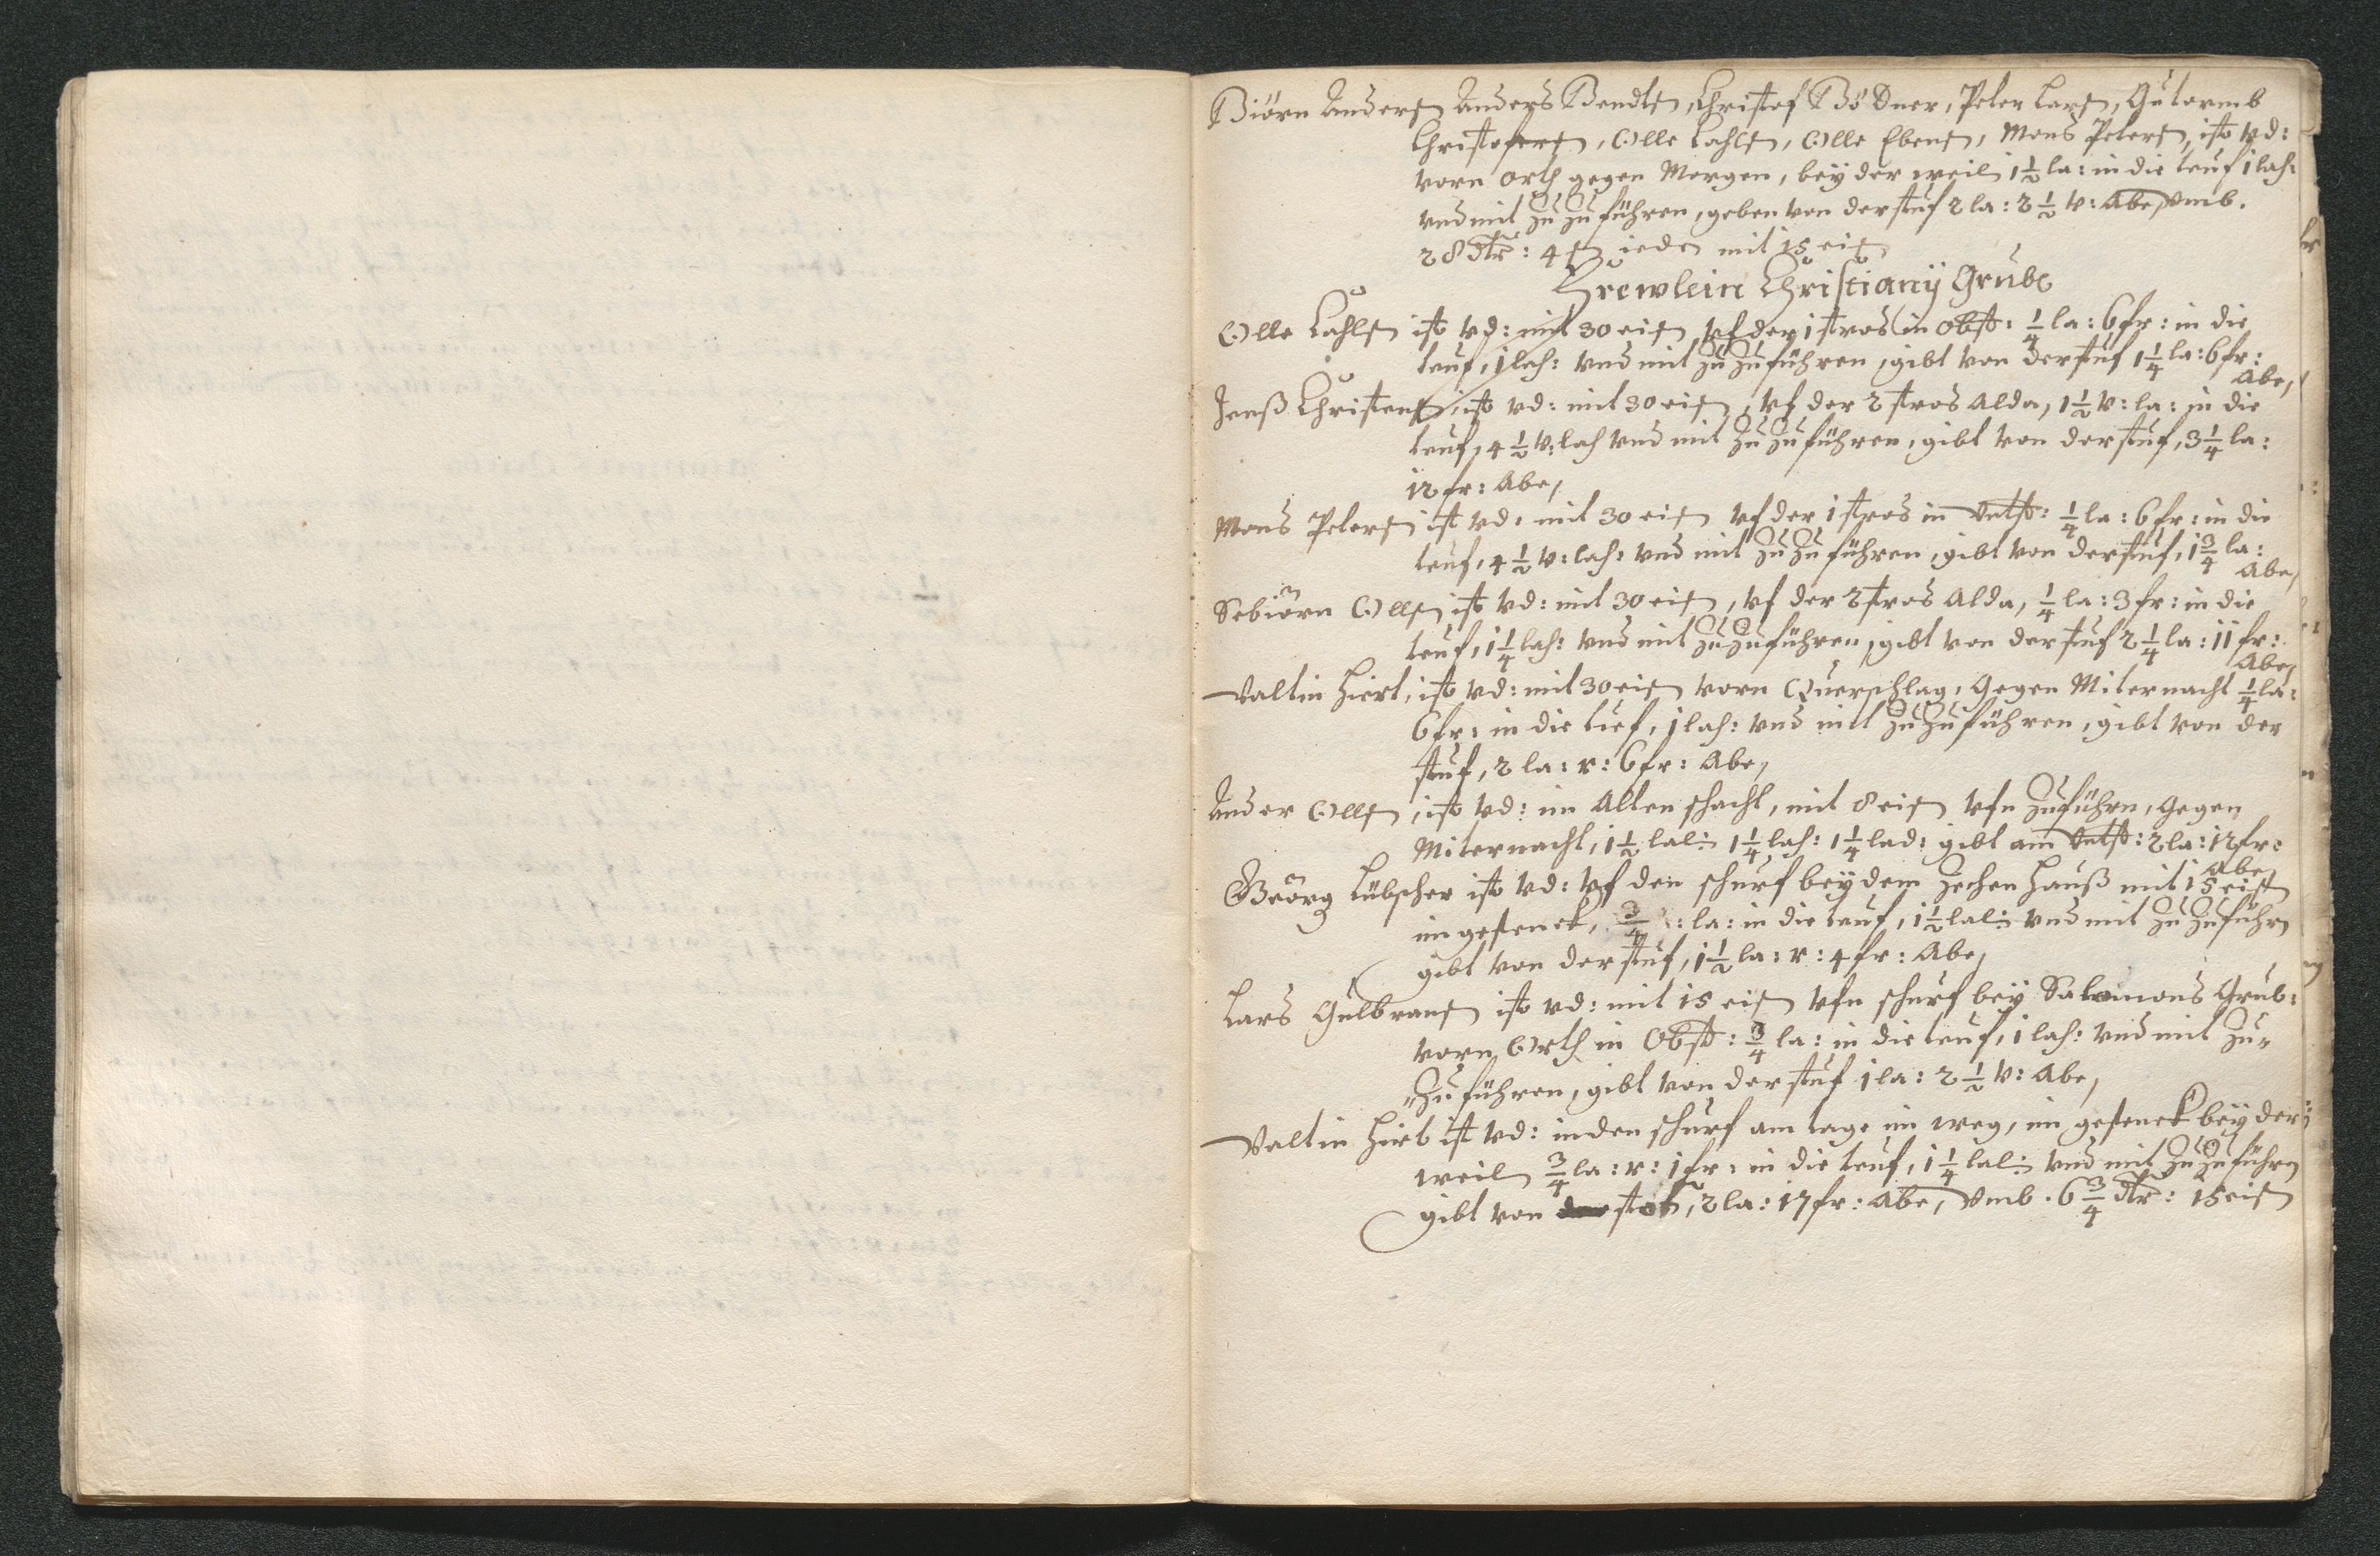 Biörn Andersen Anders Bendtsen, Christof Bödner, Peter Larsen, Gutormb
Christofersen, Olle Kahlsen, Olle Ebensen, Mons Petersen, ist vd:
vorn Orth gegen Morgen, bey der weil 1 1/2 la: in die teuf 1 lach:
vnd mit zu zu führen, geben von der stuf 2 la: 2 1/2 v: Abe, vmb.
28 dlr: 4 ß jeden mit 15 eisen
Frewlein Christianij Grube
Olle Kahlsen ist vd: mit 30 eisen vf der 1 stros in Obst: 1/4 la: 6 fr: in die
teuf, 1 lach: vnd mit zu zu führen, gibt von der stuf 1 1/4 la: 6 fr:
Abe,
Jenß Christensen, ist vd: mit 30 eisen, vf der 2 stros Alda, 1 1/2 v: la: in die
teuf, 4 1/2 v: lach vnd mit zu zu führen, gibt von der stuf, 3 1/4 la:
12 fr: Abe,
Mons Petersen ist vd: mit 30 eisen vf der 1 stros in Vntst: 1/4 la: 6 fr: in die
teuf, 4 1/2 v: lach: vnd mit zu zu führen, gibt von der stuf, 1 3/4 la:
Abe,
Sebiörn Ollsen ist vd: mit 30 eisen, vf der 2 stros Alda, 1/4 la: 3 fr: in die
teuf, 1 1/4 lach: vnd mit zu zu führen, gibt von der stuf 2 1/4 la: 11 fr:
Abe,
Valtin Hiert, ist vd: mit 30 eisen vorn Querschlag, Gegen Miternacht 1/4 la:
6 fr: in die tief, 1 lach: vnd mit zu zu führen, gibt von der
stuf, 2 la: r: 6 fr: Abe,
Ander Ollsen, ist vd: im Alten schacht, mit 8 eisen vfn zuführn, Gegen
Miternacht, 1 1/2 lal: 1 1/4 lach: 1 1/4 lad: gibt am Vntst: 2 la: 12 fr:
Abe,
Georg Lübscher ist vd: vf den schurf bey dem Zechen Hauß mit 15 eisen
im gesenck, 3/4 : la: in die teuf, 1 1/2 lal: vnd mit zu zu führn
gibt von der stuf, 1 1/2 la: r: 4 fr: Abe,
Lars Gulbransen ist vd: mit 15 eisen vfn schurf bey Salomons Grub:
vorn Orth in Obst: 3/4 la: in die teuf, 1 lach: vnd mit zu„
„zu führen, gibt von der stuf 1 la: 2 1/2 v: Abe,
Valtin Hirt ist vd: in den schurf am tage im weg, im gesenck bey der
weil 3/4 la: r: 1 fr: in die teuf, 1 1/4 lal: vnd mit zu zu führn
gibt von stof, 2 la: 17 fr: Abe, vmb. 6 3/4 dlr: 15 eisen